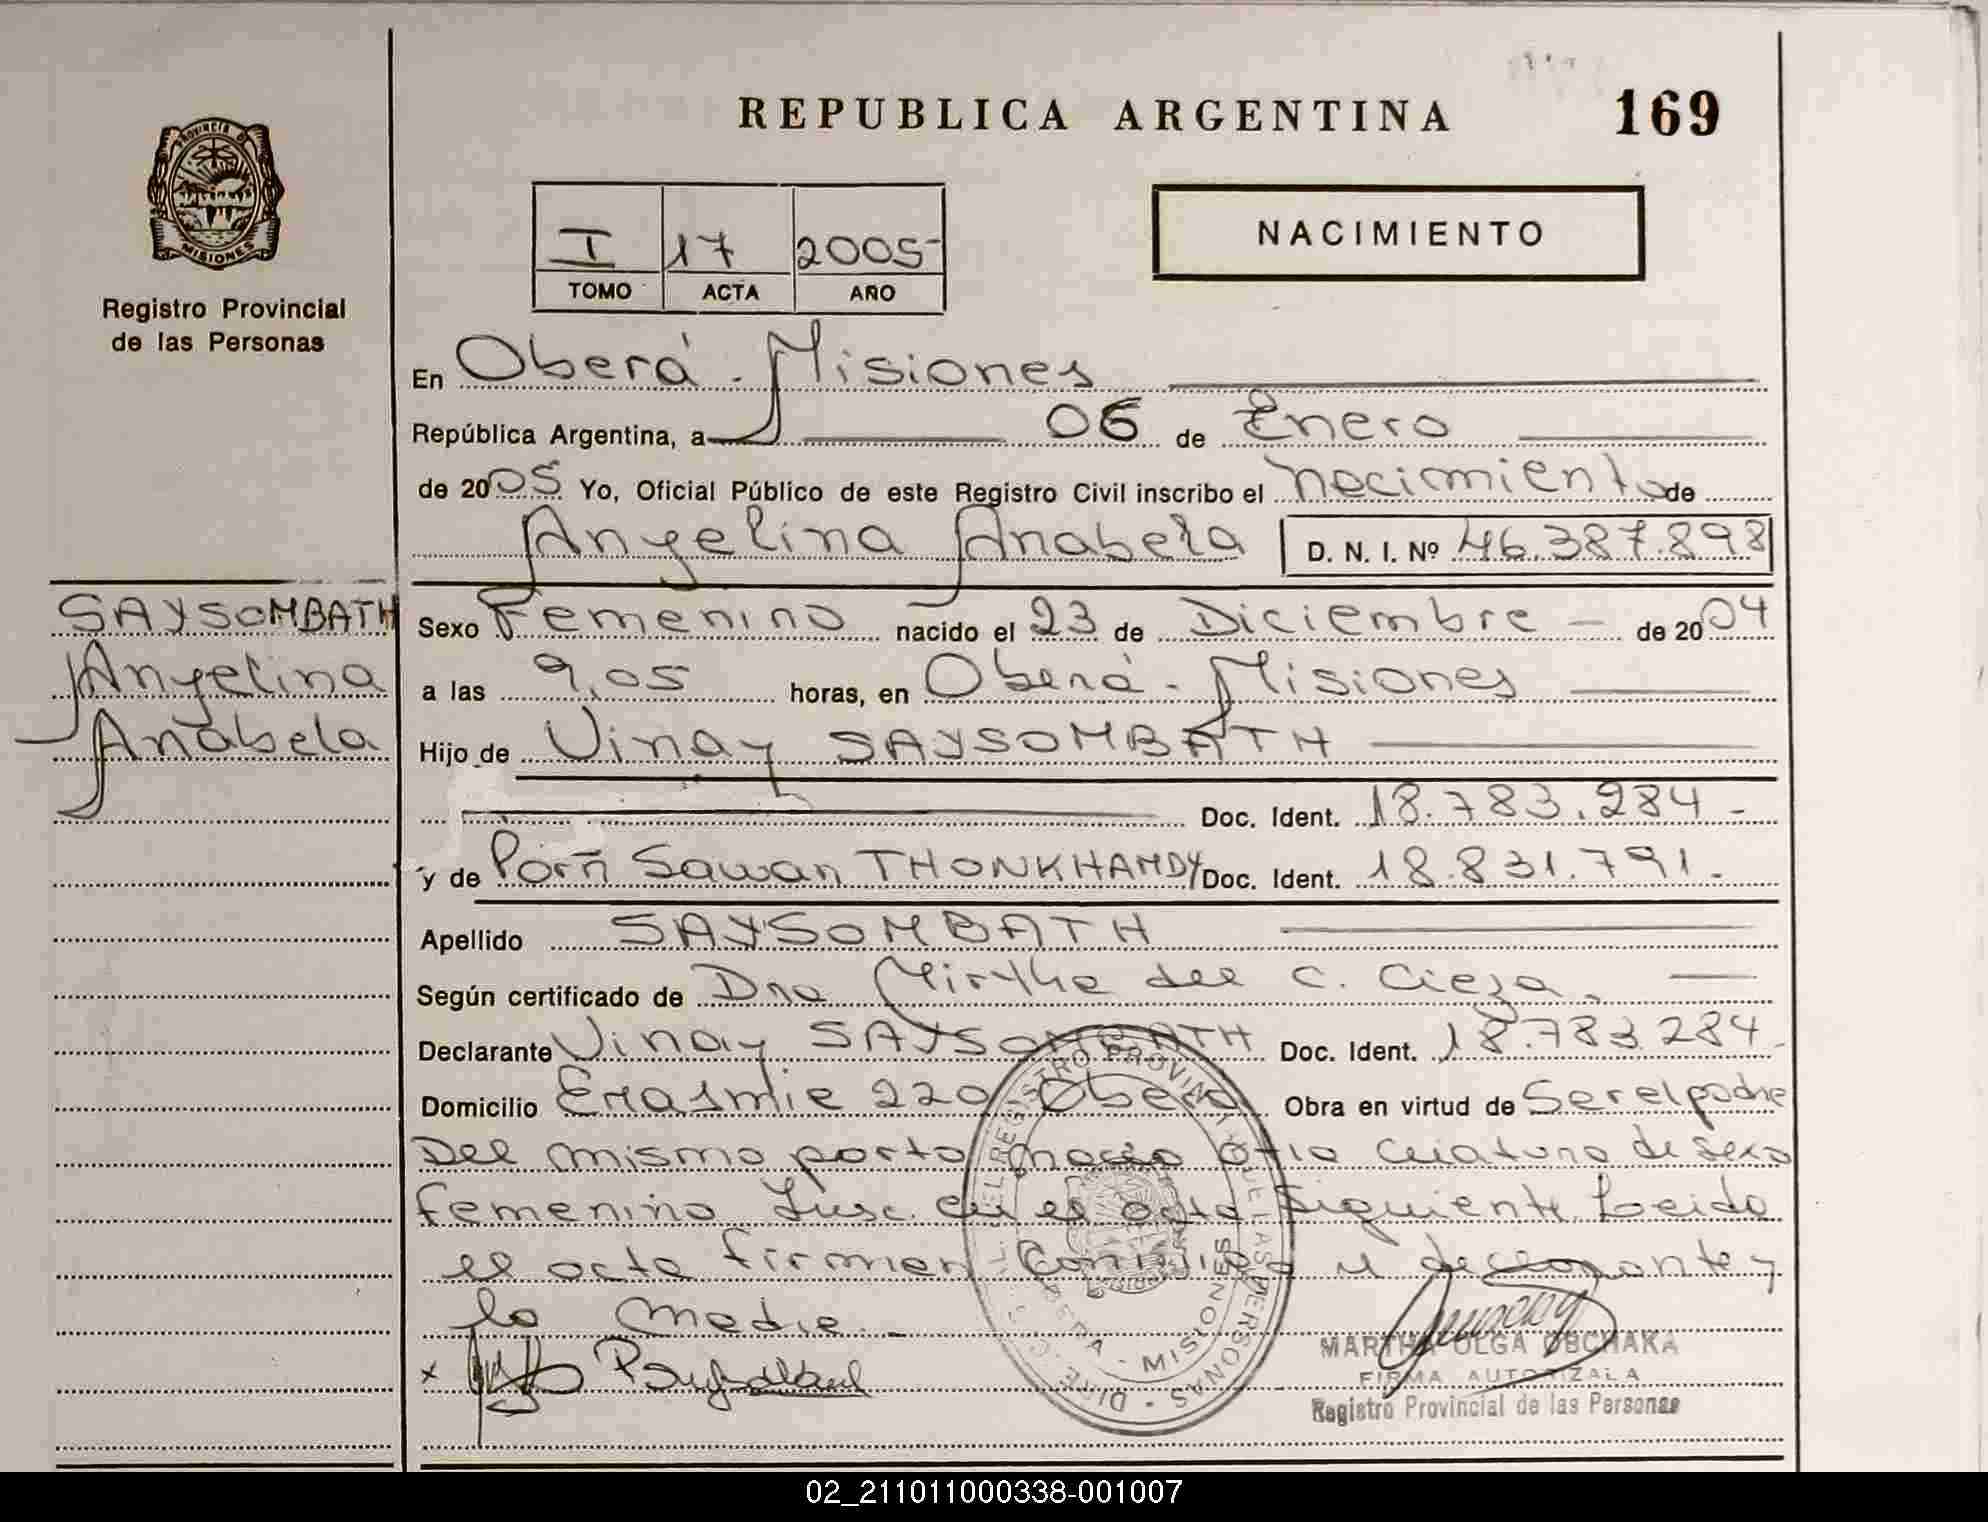 REPUBLICA ARGENTINA
169
PROVINCIA DE
MISIONES
Registro Provincial
de las Personas
I 17 2005
TOMO ACTA AÑO
NACIMIENTO
En Oberá - Misiones
República Argentina, a 06 de Enero
de 2005 Yo, Oficial Público de este Registro Civil inscribo el nacimiento de
Angelina Anabela D. N. I. Nº 46.387.898
SAYSOMBATH
Angelina
Anabela
Sexo Femenino nacido el 23 de Diciembre - de 2004
a las 9,05 horas, en Oberá - Misiones
Hijo de Vinay SAYSOMBATH
Doc. Ident. 18.783.284 -
y de Porn Sawan THONKHAMDY Doc. Ident. 18.831.791.-
Apellido SAYSOMBATH
Según certificado de Dra Mirtha del C. Cieza.
Declarante Vinay SAYSOMBATH Doc. Ident. 18.783.284 -
Domicilio 220 Oberá Obra en virtud de Ser el padre
Del mismo parto nació otra criatura de sexo
femenino Insc. en el acta siguiente Leida
el acta firman conmigo el declarante y
la madre.-
x
MARTHA OLGA OBCHAKA
FIRMA AUTORIZADA
Registro Provincial de las Personas
REGISTRO PROVINCIAL DE LAS PERSONAS
MISIONES
02_211011000338-001007